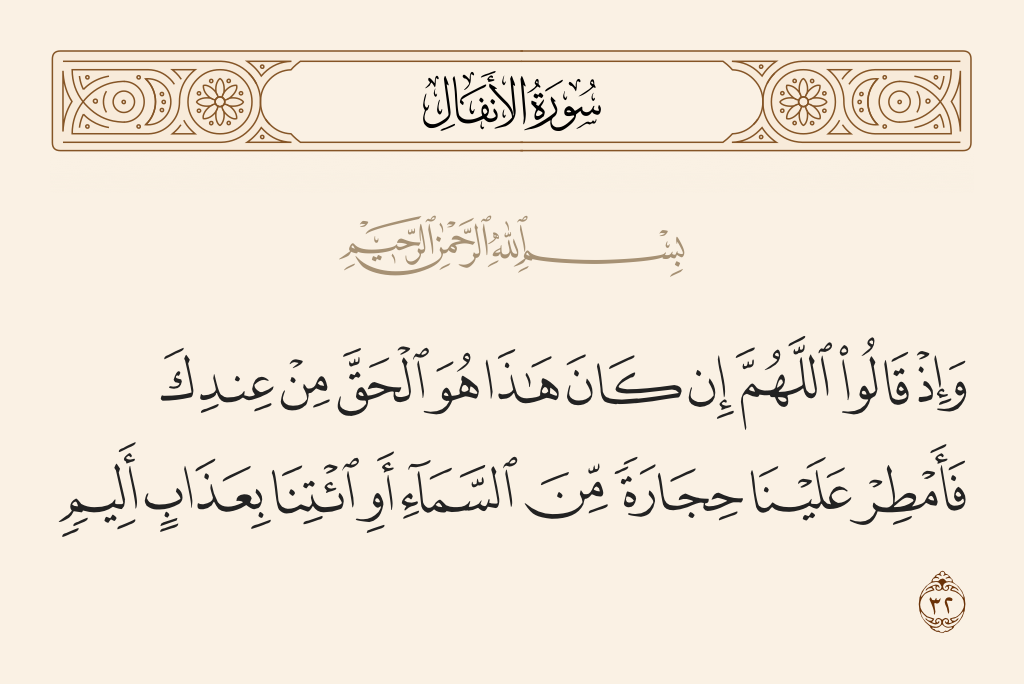 سُورَةُ الأَنفَالِ
بِسْمِ ٱللَّهِ ٱلرَّحْمَٰنِ ٱلرَّحِيمِ
وَإِذْ قَالُوا۟ ٱللَّهُمَّ إِن كَانَ هَـٰذَا هُوَ ٱلْحَقَّ مِنْ عِندِكَ
فَأَمْطِرْ عَلَيْنَا حِجَارَةً مِّنَ ٱلسَّمَآءِ أَوِ ٱئْتِنَا بِعَذَابٍ أَلِيمٍ
٣٢